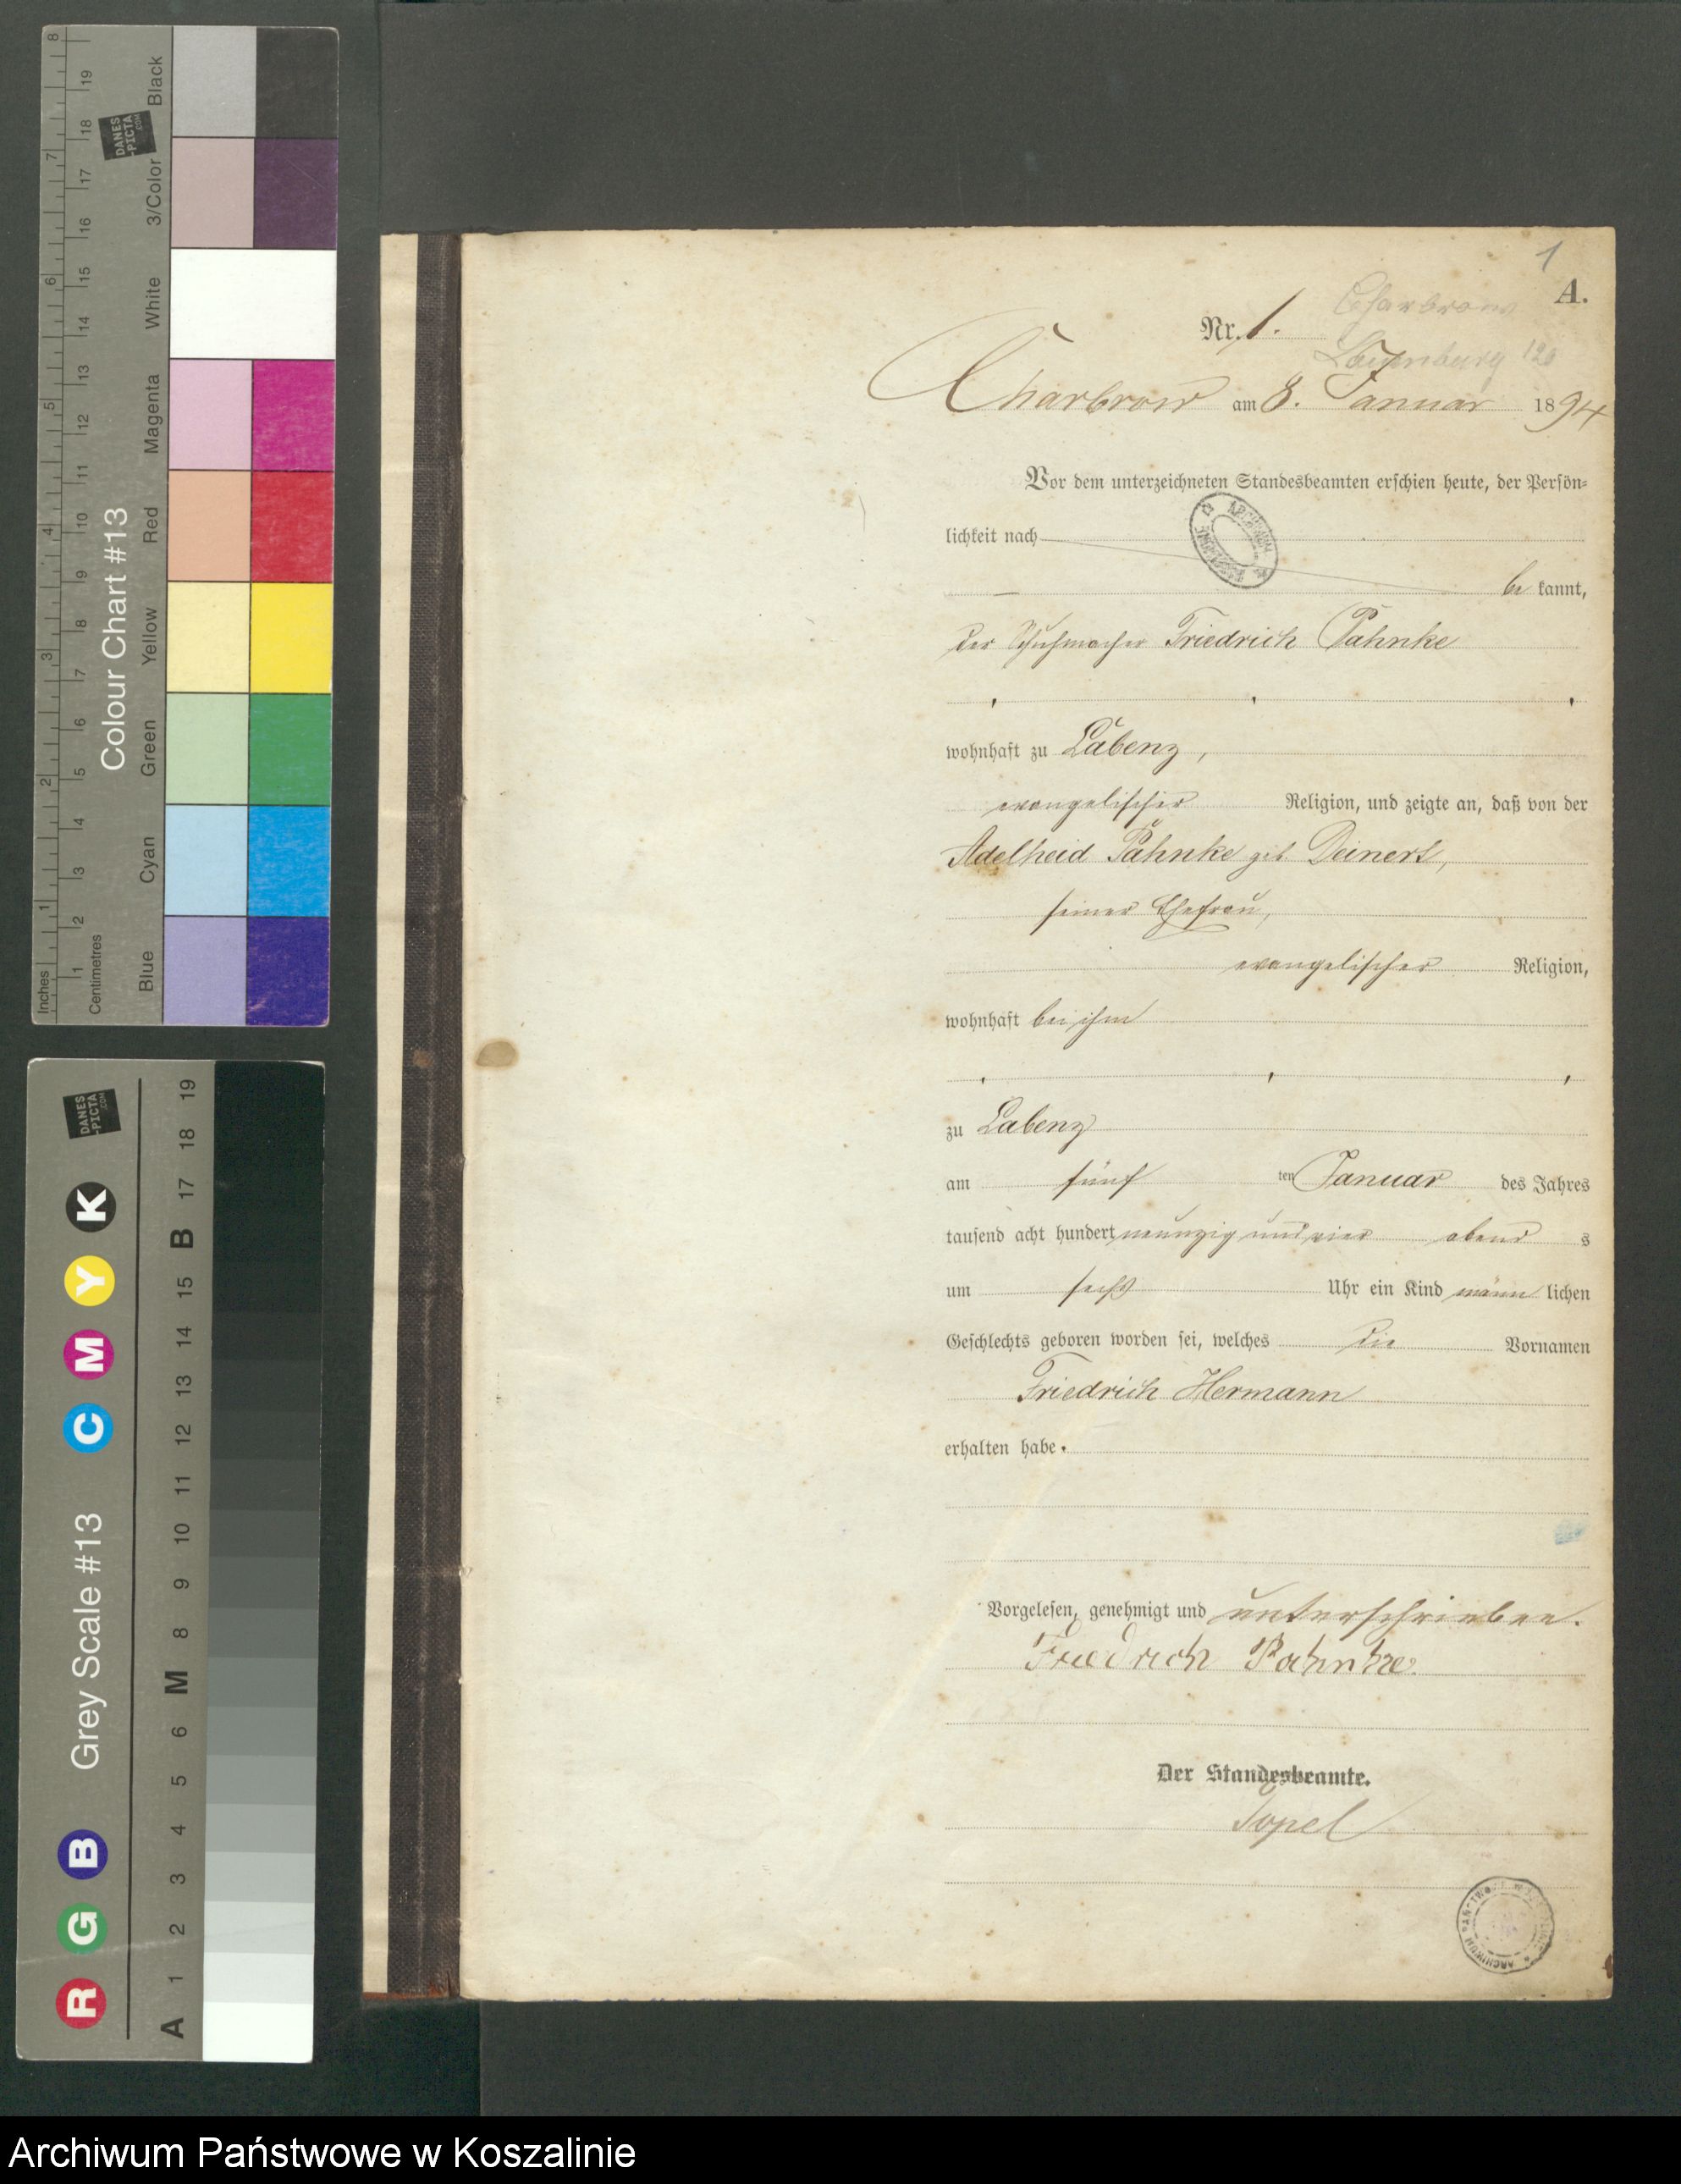 1
A.
Charbrow
Nr. 1.
Lauenburg
Charbrow am 8. Januar 1894
Vor dem unterzeichneten Standesbeamten erschien heute, der Persön-
lichkeit nach
be kannt,
der Schuhmacher Friedrich Pahnke
wohnhaft zu Labenz,
evangelischer Religion, und zeigte an, daß von der
Adelheid Pahnke geb. Deinert,
seiner Ehefrau,
evangelischer Religion,
wohnhaft bei ihm
zu Labenz
am fünf ten Januar des Jahres
tausend acht hundert neunzig und vier abend s
um sechs Uhr ein Kind männ lichen
Geschlechts geboren worden sei, welches die Vornamen
Friedrich Hermann
erhalten habe.
Vorgelesen, genehmigt und unterschrieben.
Friedrich Pahnke.
Der Standesbeamte.
Topel
Colour Chart #13
Inches 1 2 3 4 5 6 7 8
Centimetres 1 2 3 4 5 6 7 8 9 10 11 12 13 14 15 16 17 18 19
Blue Cyan Green Yellow Red Magenta White 3/Color Black
DANES
-PICTA
.COM
Grey Scale #13
R G B C M Y K
A 1 2 3 4 5 6 M 8 9 10 11 12 13 14 15 B 17 18 19
DANES
-PICTA
.COM
Archiwum Państwowe w Koszalinie